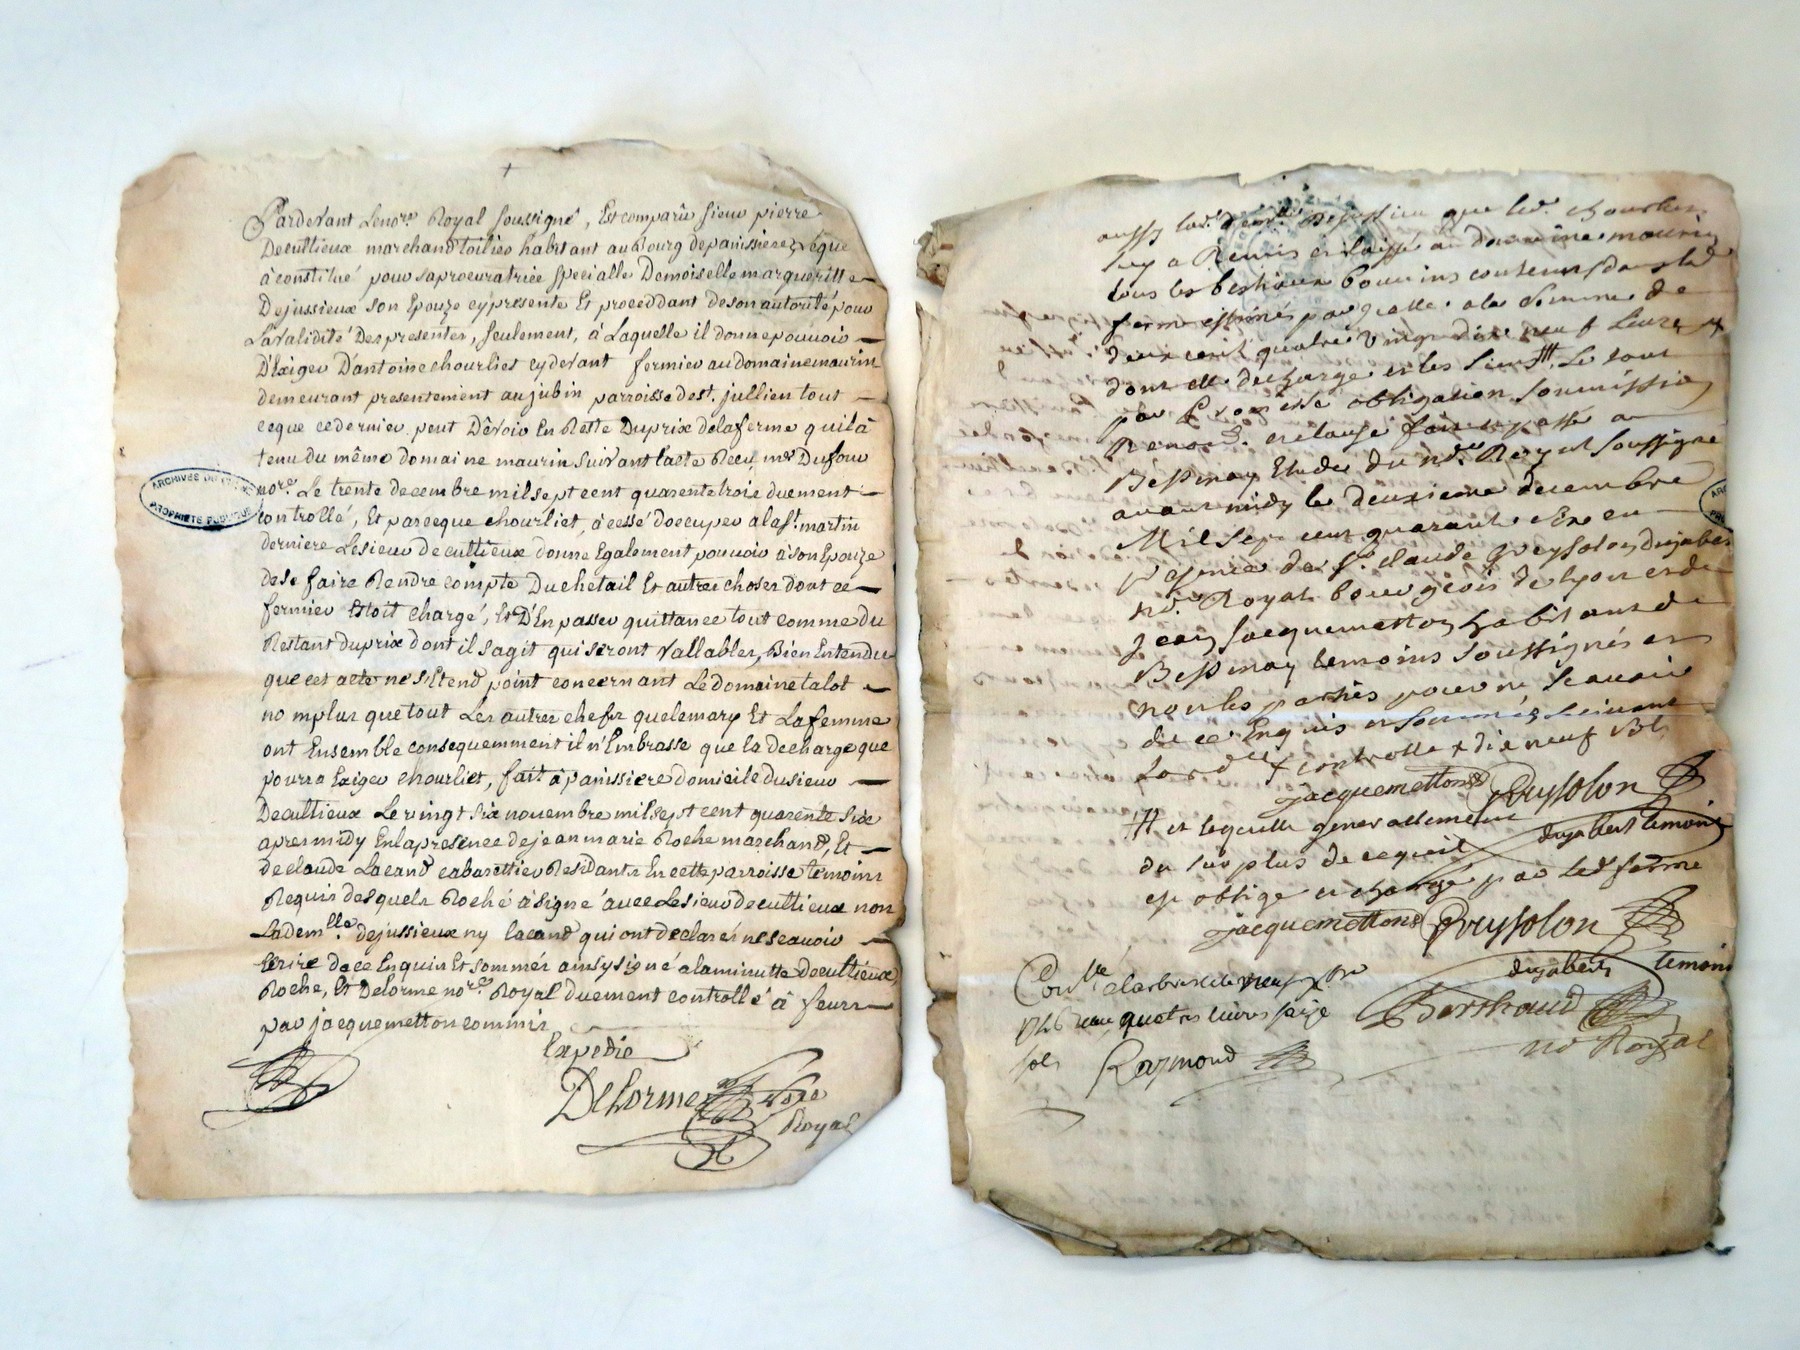 Pardevant Lenore. Royal soussigné, Est comparu sieur pierre
Decultieux marchand toilier habitant au Bourg depanissiere, Léque
à constitué pour saprocuratrice specialle Demoiselle margueritte
Dejussieux son Epouze cy presente Et proceddant deson autorité pour
Lavalidité Des presentes, seulement, à Laquelle il donne pouvoir
D'Exiger D'antoine chourliet cydevant fermier au domaine maurin
demeurant presentement au jubin parroisse de st. jullien tout
ceque cedernier peut Dêvoir En Reste Du prix delaferme quil à
tenu du même domaine maurin suivant lacte Recu me Dufour
nore. Le trente decembre mil sept cent quarente trois duement
controllé, Et parceque chourliet, à cessé doccuper ala st. martin
derniere Lesieur decultieux donne Egalement pouvoir à son Epouze
dese faire Rendre compte Du chetail Et autres choses dont ce
fermier Etoit chargé, Et D'En passer quittance tout comme du
Restant du prix dont il sagit qui seront vallables, Bien Entendu
que cet acte ne s'Etend point concernant Le domaine talot
nomplus que tout Les autres chefs quelemary Et Lafemme
ont Ensemble consequemment il n'Embrasse que la decharge que
pourra Exiger chourliet, fait à panissiere domicile dusieur
Decultieux Le vingt six novembre mil sept cent quarente six
apres midy En la presence de jean marie Roche marchand, Et
de claude Lacand cabarettier Residants En cette parroisse temoins
Requis desquels Roche à signé avec Le sieur decultieux non
Lademlle dejussieux ny lacand qui ont declarés ne scavoir
Ecrire dece Enquis Et sommés ainsy signé alaminutte decultieux,
Roche, Et Delorme nore. Royal duement controllé à feurs
par jacquemetton commis
Expedie
Delorme Nore
Royal
ARCHIVES DE LA LOIRE
PROPRIETE PUBLIQUE
luy a Remis et laissé au domaine maurin
tous les bestiaux bouvins contenus dans lad
ferme estimés par icelle a la somme de
deux cent quatre vingt dix neuf Livres
dont elle decharge et les siens ## Le tout
par Promesse obligation soumission
Renon. et clause fait et passé a
Bessinay Etude du nre. Royal soussigné
avant midy le deuxieme decembre
Mil sept cent quarante six en
presence de sr. claude Preysolon dujabert
nre. Royal bourgeois de lyon et de
jean jacquemetton habitant de
Bessinay temoins soussignés et
non les parties pour ne scavoir
de ce Enquis et sommés suivant
Lordce X controlle X dix neuf sols
Jacquemetton Preysolon
## et laquelle generallement dujabert temoin
du surplus de cequil
est obligé et chargé par led ferme
Jacquemetton Preysolon
dujabert temoin
Berthaud
nre Royal
1746 Recu quatre livres seize
sols Raymond